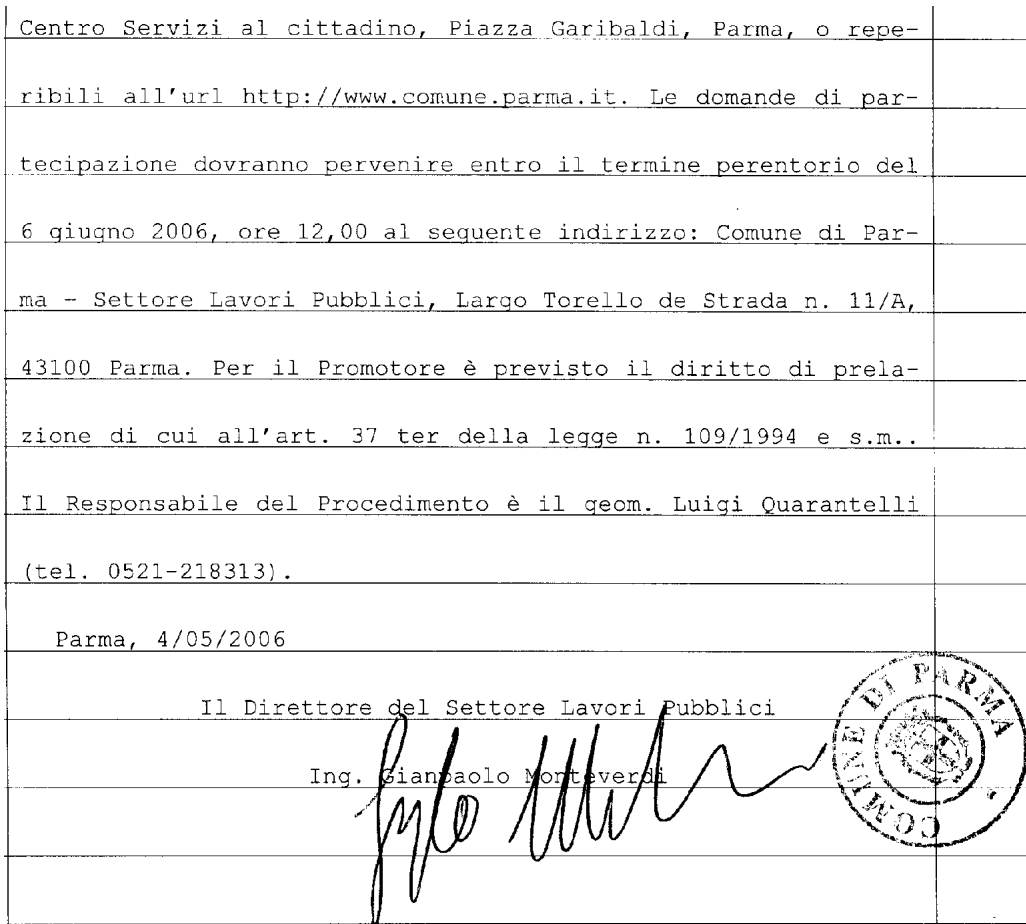 Centro Servizi al cittadino, Piazza Garibaldi, Parma, o repe-
ribili all'url http://www.comune.parma.it. Le domande di par-
tecipazione dovranno pervenire entro il termine perentorio del
6 giugno 2006, ore 12,00 al seguente indirizzo: Comune di Par-
ma - Settore Lavori Pubblici, Largo Torello de Strada n. 11/A,
43100 Parma. Per il Promotore è previsto il diritto di prela-
zione di cui all'art. 37 ter della legge n. 109/1994 e s.m..
Il Responsabile del Procedimento è il geom. Luigi Quarantelli
(tel. 0521-218313).
Parma, 4/05/2006
Il Direttore del Settore Lavori Pubblici
Ing. Gianpaolo Monteverdi
COMUNE DI PARMA